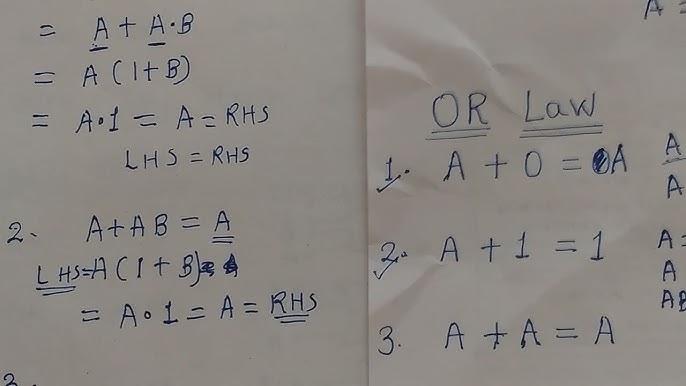 = A + A·B
= A (1+B)
= A·1 = A = RHS
LHS = RHS
2. A+AB = A
LHS = A (1 + B)
= A·1 = A = RHS
3.
A =
OR Law
1. A + 0 = A
2. A + 1 = 1
3. A + A = A
A
A
A =
A
AB